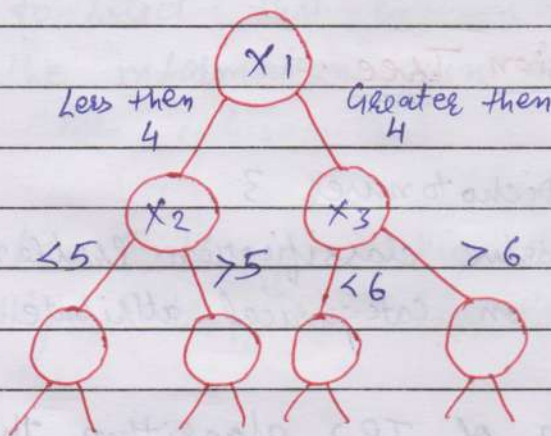 X1
Less then Greater then
4 4
X2 X3
<5 >5 <6 >6